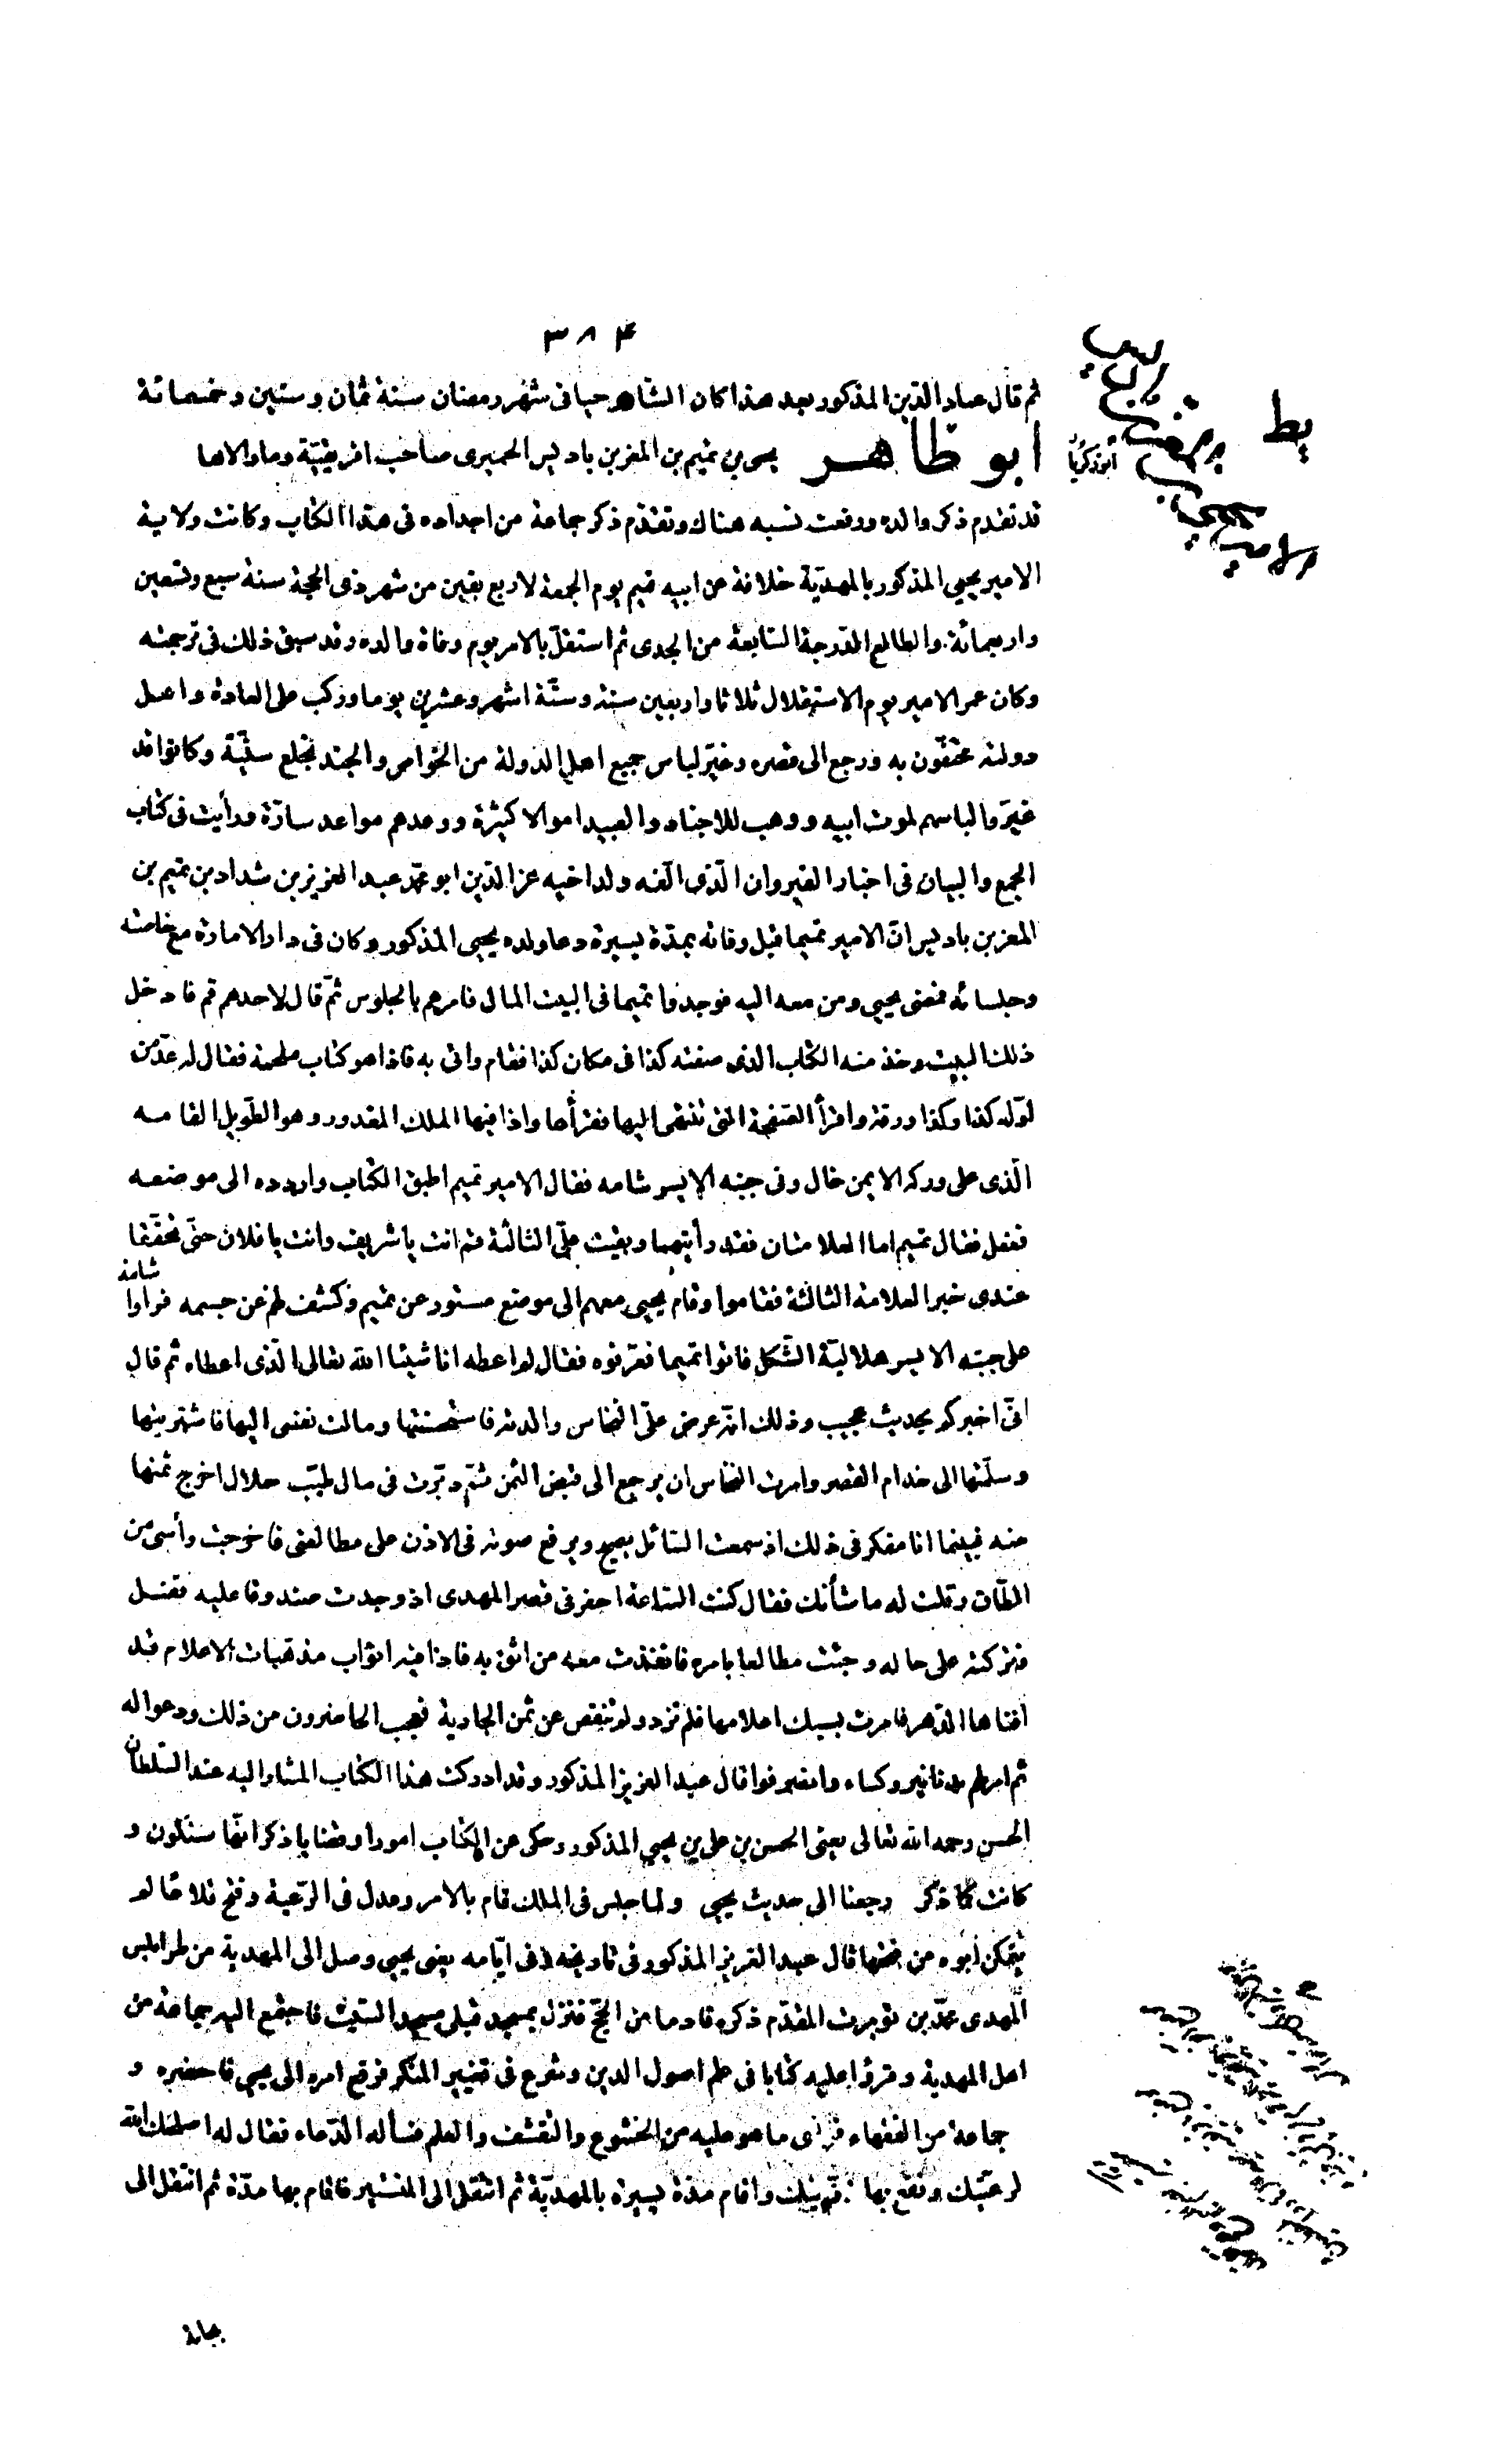 ٣٨۴
ثم قال عماد الدين المذكور بعد هذا كان الشاهر حيا فى شهر رمضان سنة ثمان وستين وخمسمائة
يط
ابو طاهر يحيى بن تميم بن المعز بن باديس الحميرى صاحب افريقيّة وما والاها
ابو زكريا
قد تقدم ذكر والده ورفعت نسبه هناك وتقدّم ذكر جماعة من اجداده فى هذا الكتاب وكانت ولاية
الامير يحيى المذكور بالمهديّة خلافة عن ابيه تميم يوم الجمعة لاربع بقين من شهر ذى الحجة سنة سبع وتسعين
واربعمائة والطالع الدّرجة السّابعة من الجدى ثم استقلّ بالامر يوم وفاة والده وقد سبق ذلك فى ترجمته
وكان عمر الامير يوم الاستقلال ثلاثا واربعين سنة وستّة اشهر وعشرين يوما وركب على العادة واهل
دولته محتفّون به ورجع الى قصره وغيّر لباس جميع اهل الدولة من الخواص والجند بخلع سنيّة وكانوا قد
غيّروا لباسهم لموت ابيه ووهب للاجناد والعبيد اموالا كثيرة ووعدهم مواعد سارّة ورأيت فى كتاب
الجمع والبيان فى اخبار القيروان الّذى الّفه ولد اخيه عز الدّين ابو محمّد عبد العزيز بن شداد بن تميم بن
المعز بن باديس انّ الامير تميما قبل وفاته بمدّة يسيرة دعا ولده يحيى المذكور وكان فى دار الامارة مع خاصته
وجلسائه فمضى يحيى ومن معه اليه فوجدوا تميما فى البيت المال فامرهم بالجلوس ثمّ قال لاحدهم قم فادخل
ذلك البيت وخذ منه الكتاب الذى صفته كذا فى مكان كذا فقام واتى به فاذا هو كتاب ملحمة فقال له عدّ من
اوّله كذا وكذا ورقة واقرأ الصّفحة التى تنتهى اليها فقرأها واذا فيها الملك المغدور وهو الطّويل القامه
الّذى على وركه الايمن خال وفى جنبه الايسر شامه فقال الامير تميم اطبق الكتاب واردده الى موضعه
ففعل فقال تميم اما العلامتان فقد رأيتهما وبقيت علىّ الثالثة قم انت يا شريف وانت يا فلان حتى تحقّقا
عندى خبر العلامة الثالثة فقاموا وقام يحيى معهم الى موضع مستور عن تميم وكشف لهم عن جسمه فراوا شامة
على جنبه الايسر هلاليّة الشّكل فاتوا تميما فعرّفوه فقال لم اعطه انا شيئا الله تعالى الّذى اعطاه ثم قال
انّى اخبركم بحديث عجيب وذلك انّه عرض علىّ النخاس والدته فاستحسنتها ومالت نفسى اليها فاشتريتها
وسلّمتها الى خدام القصر وامرت النخّاس ان يرجع الى قبض الثمن ثمّ دبّرت فى مال طيّب حلال اخرج ثمنها
منه فبينما انا مفكر فى ذلك اذ سمعت السّائل يصيح ويرفع صوته فى الاذن على مطالعتى فاخرجت رأسى من
الطّاق وقلت له ما شأنك فقال كنت السّاعة احفر فى قصر المهدى اذ وجدت صندوقا عليه قفل
فتركته على حاله وجئت مطالعا بامره فانفذت معه من اثق به فاذا فيه اثواب مذهّبات الاعلام قد
افناها الدّهر فامرت بسبك اعلامها فلم تزد ولم تنقص عن ثمن الجارية فعجب الحاضرون من ذلك ودعوا له
ثم امر لهم بدنانير وكساء وانصرفوا قال عبد العزيز المذكور وقد ادركت هذا الكتاب المشار اليه عند السّلطان
الحسن رحمه الله تعالى يعنى الحسن بن على بن يحيى المذكور وحكى عن الكتاب امورا وقضايا ذكر انّها ستكون و
كانت كما ذكر رجعنا الى حديث يحيى ولما جلس فى الملك قام بالامر وعدل فى الرّعية وفتح قلاعا لم
يتمكن ابوه من فتحها قال عبد العزيز المذكور فى تاريخه وفى ايّامه يعنى يحيى وصل الى المهدية من طرابلس
المهدى محمّد بن تومرت المقدّم ذكره قادما من الحجّ فنزل بمسجد قبلى مسجد السبت فاجتمع اليه جماعة من
اهل المهدية وقرؤا عليه كتابا فى علم اصول الدين وشرع فى تغيير المنكر فرفع امره الى يحيى فاحضره و
جماعة من الفقهاء فراى ما هو عليه من الخشوع والتقشف والعلم فسأله الدّعاء فقال له اصلحك الله
لرعيّتك ونفع بها ذرّيتك واقام مدّة يسيرة بالمهديّة ثم انتقل الى المنستير فاقام بها مدّة ثم انتقل الى
بجاية